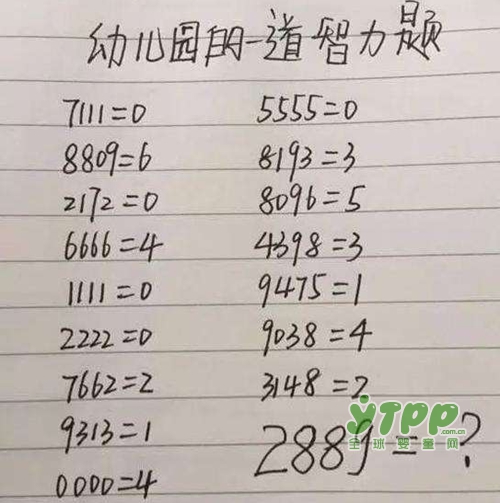 幼儿园的一道智力题
7111=0
8809=6
2172=0
6666=4
1111=0
2222=0
7662=2
9313=1
0000=4
5555=0
8193=3
8096=5
4398=3
9475=1
9038=4
3148=2
2889=?
YTPP.com.cn
全球婴童网